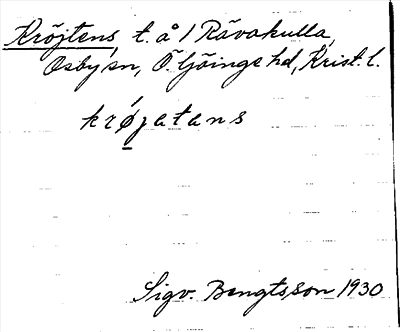 Kröjtens, t. å 1 Rävakulla,
Osby sn, Ö. Göinge hd, Krist. l.
krǿ̱jatans
Sigv. Bengtsson 1930